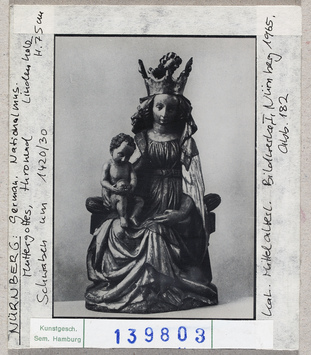 NÜRNBERG: German. Nationalmus.
Muttergottes, thronend Lindenholz
Schwaben um 1420/30 H. 75 cm
Kat. Mittelalterl. Bildwerke I, Nürnberg 1965.
Abb. 182
Kunstgesch.
Sem. Hamburg
139803